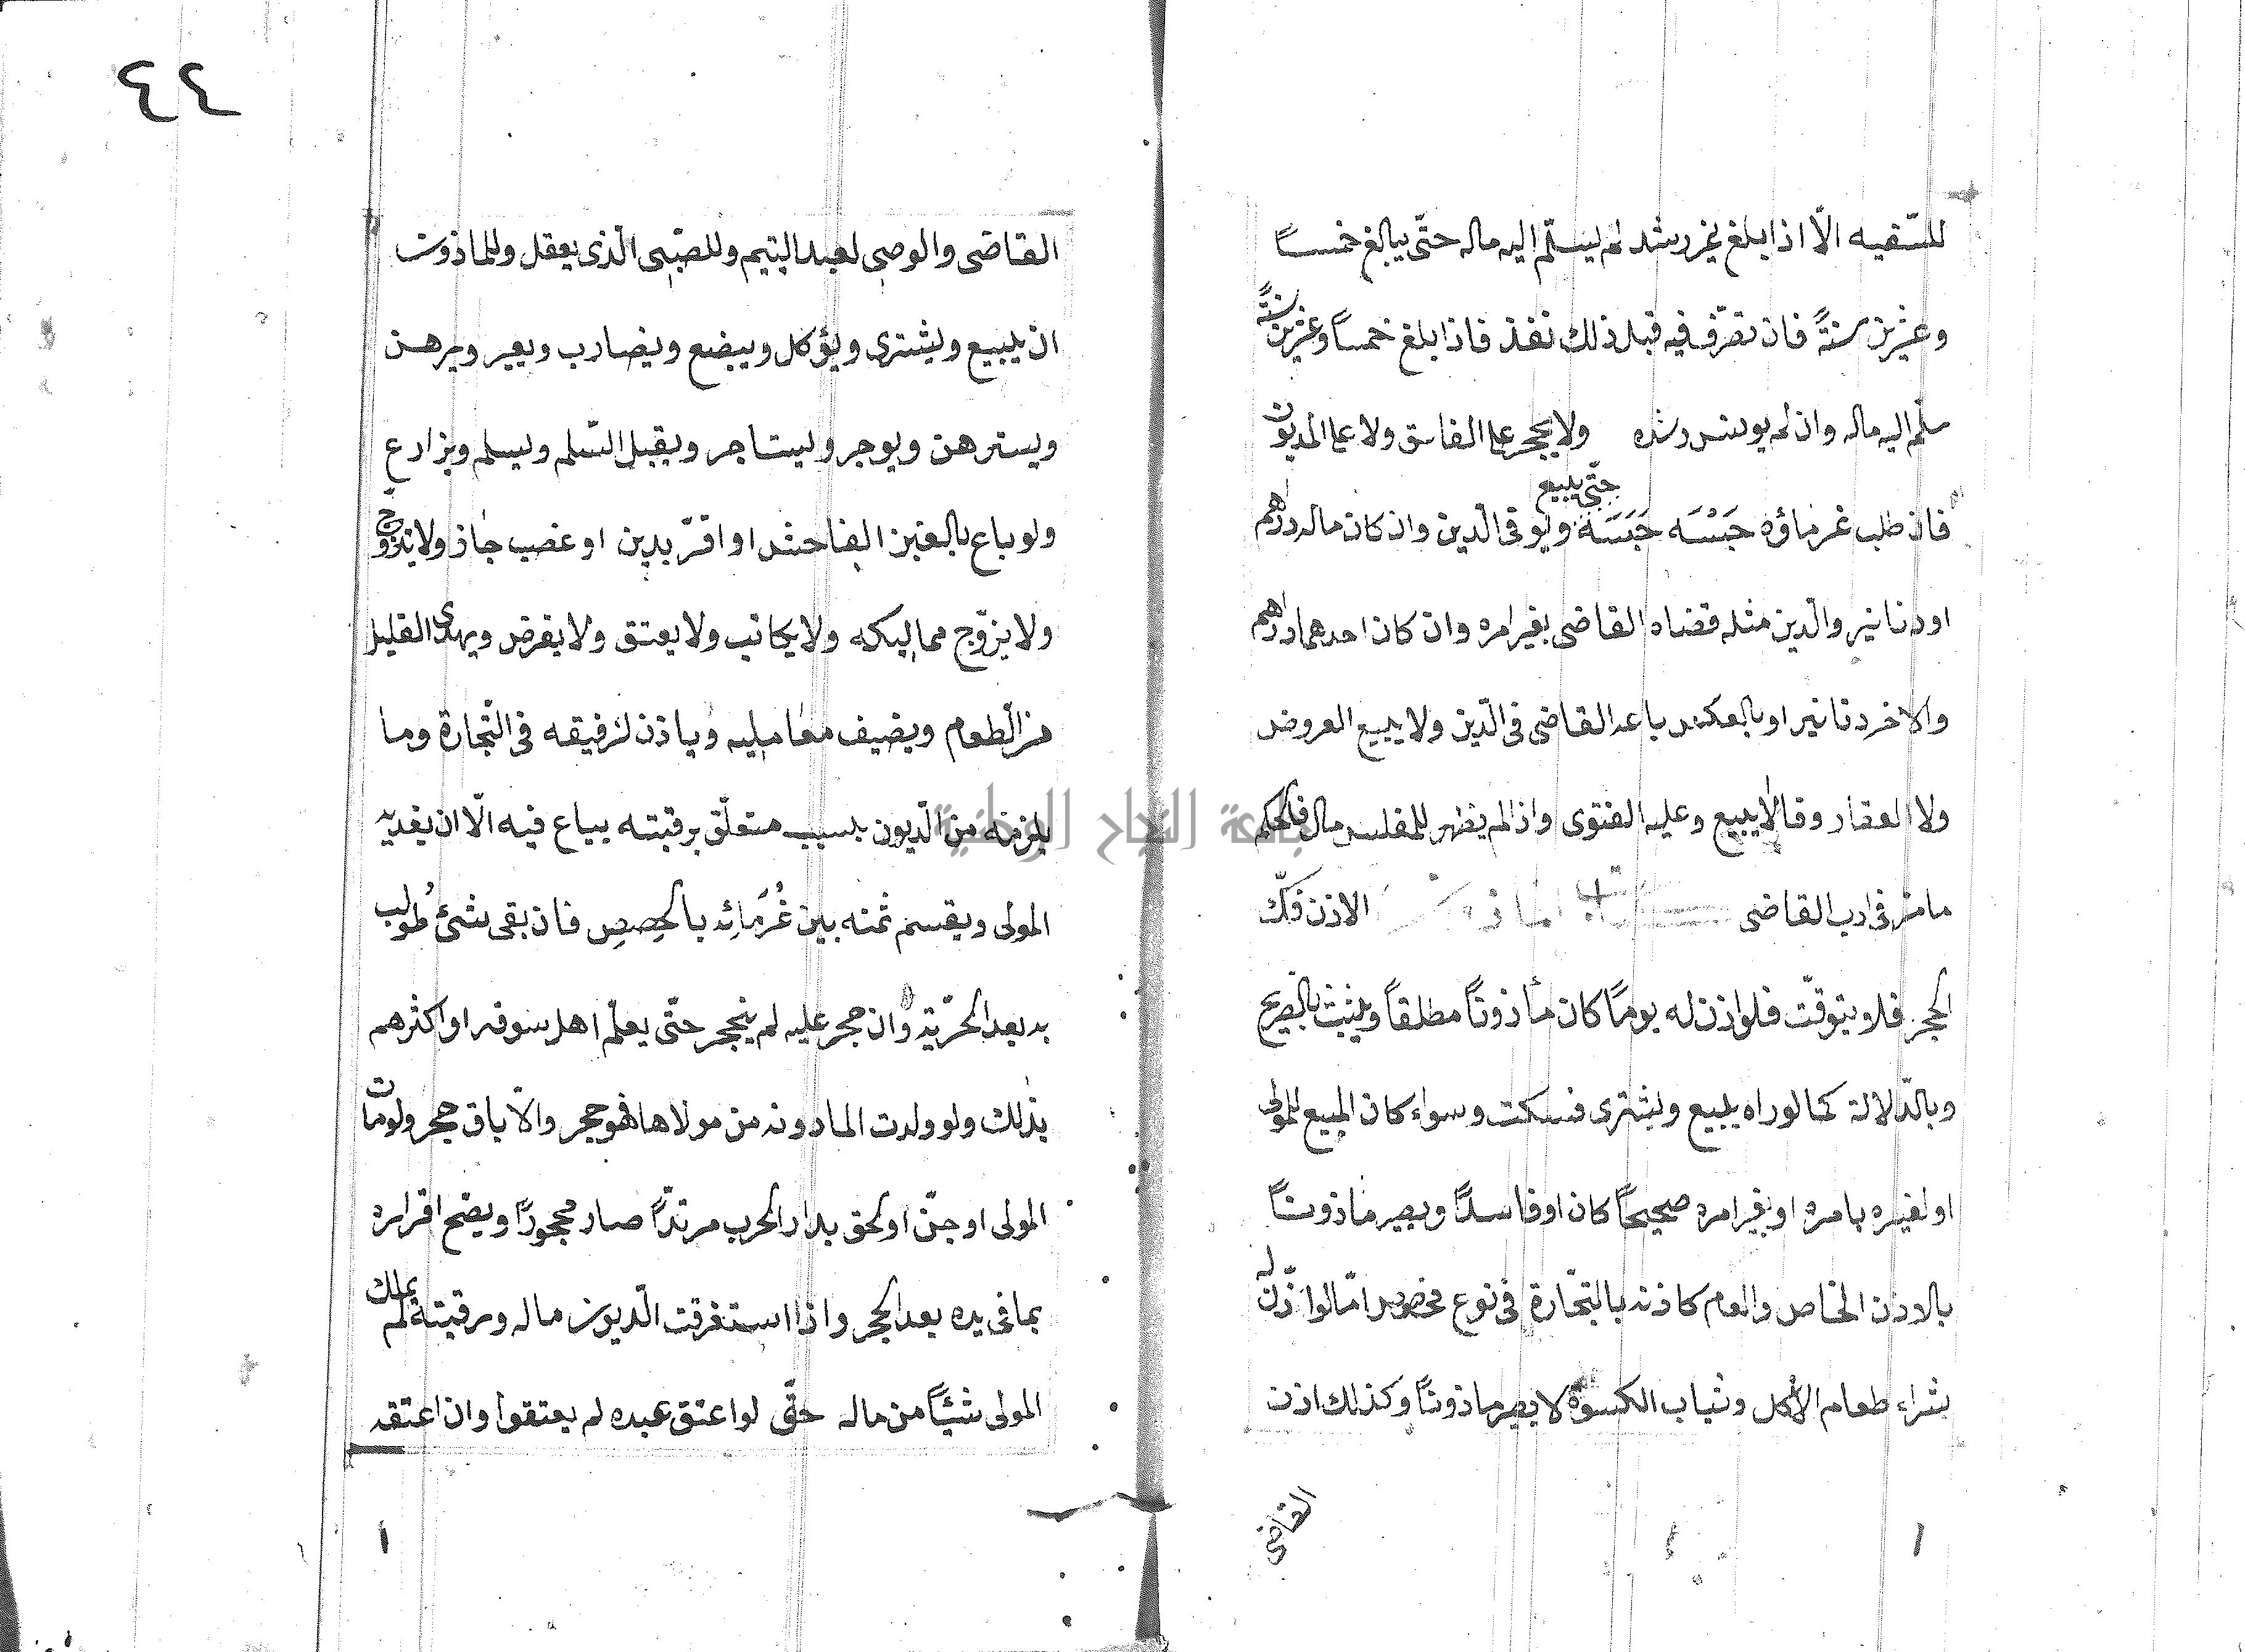 للسّفيه الّا اذا بلغ غير رشد لم يسلّم اليه ماله حتّى يبالغ خمساً
وعشرين سنةً فان تصرّف فيه قبل ذلك نفذ فاذا بلغ خمساً وعشرين سنةً
سلّم اليه ماله وان لم يونس رشده ولا يحجر على الفاسق ولا على المديون
فان طلب غرماؤه حَبْسَه حَبَسَهُ حتّى يبيع ويوفى الدّين وان كان ماله دراهم
او دنانير والدّين مثله قضاه القاضى بغير امره وان كان احدهما دراهم
والاخر دنانير او بالعكس باعه القاضى فى الدّين ولا يبيع العروض
ولا العقار وقالا يبيع وعليه الفتوى واذا لم يظهر للمفلس مال فالحكم
ما مرّ فى ادب القاضى كتاب الماذون الاذن فكّ
الحجر فلا يتوقّت فلو اذن له يوماً كان مأذوناً مطلقاً ويثبت بالصريح
وبالدّلالة كما لو راه يبيع ويشترى فسكت وسواء كان المبيع للمولى
او لغيره بامره او بغير امره صحيحاً كان او فاسداً ويصير ماذوناً
بالاذن الخاص والعام كاذنه بالتجّارة فى نوع مخصوص امّا لو اذن له
بشراء طعام الأكل وثياب الكسوة لا يصير ماذوناً وكذلك اذن
القاضى
٤٤
القاضى والوصى لعبد اليتيم وللصّبى الّذى يعقل وللماذون
ان يبيع ويشترى ويؤكل ويبضع ويضارب ويعير ويرهن
ويسترهن ويوجر ويستاجر ويقبل السّلم ويسلم ويزارع
ولو باع بالغبن الفاحش او اقرّ بدين او غصب جاز ولا يتزوّج
ولا يزوّج مماليكه ولا يكاتب ولا يعتق ولا يقرض ويهدى القليل
من الطعام ويضيف معامليه وياذن لرفيقه فى التّجارة وما
يلزمه من الدّيون بسبب متعلّق برقبته يباع فيه الّا ان يفديه
المولى ويقسم ثمنه بين غُرَمائِه بالحِصصِ فان بقى شئ طُولب
به بعد الحرّيّة وان حجر عليه لم ينحجر حتّى يعلم اهل سوقه او اكثرهم
بذلك ولو ولدت الماذونه من مولاها فهو حجر والاباق حجر ولو مات
المولى او جنّ او لحق بدار الحرب مرتدّاً صار محجوراً ويصّح اقراره
بما فى يده بعد الحجر واذا استغرقت الدّيون ماله ورقبته لم يملك
المولى شيئاً من ماله حتّى لو اعتق عبده لم يعتقوا وان اعتقه
جامعة النجاح الوطنية